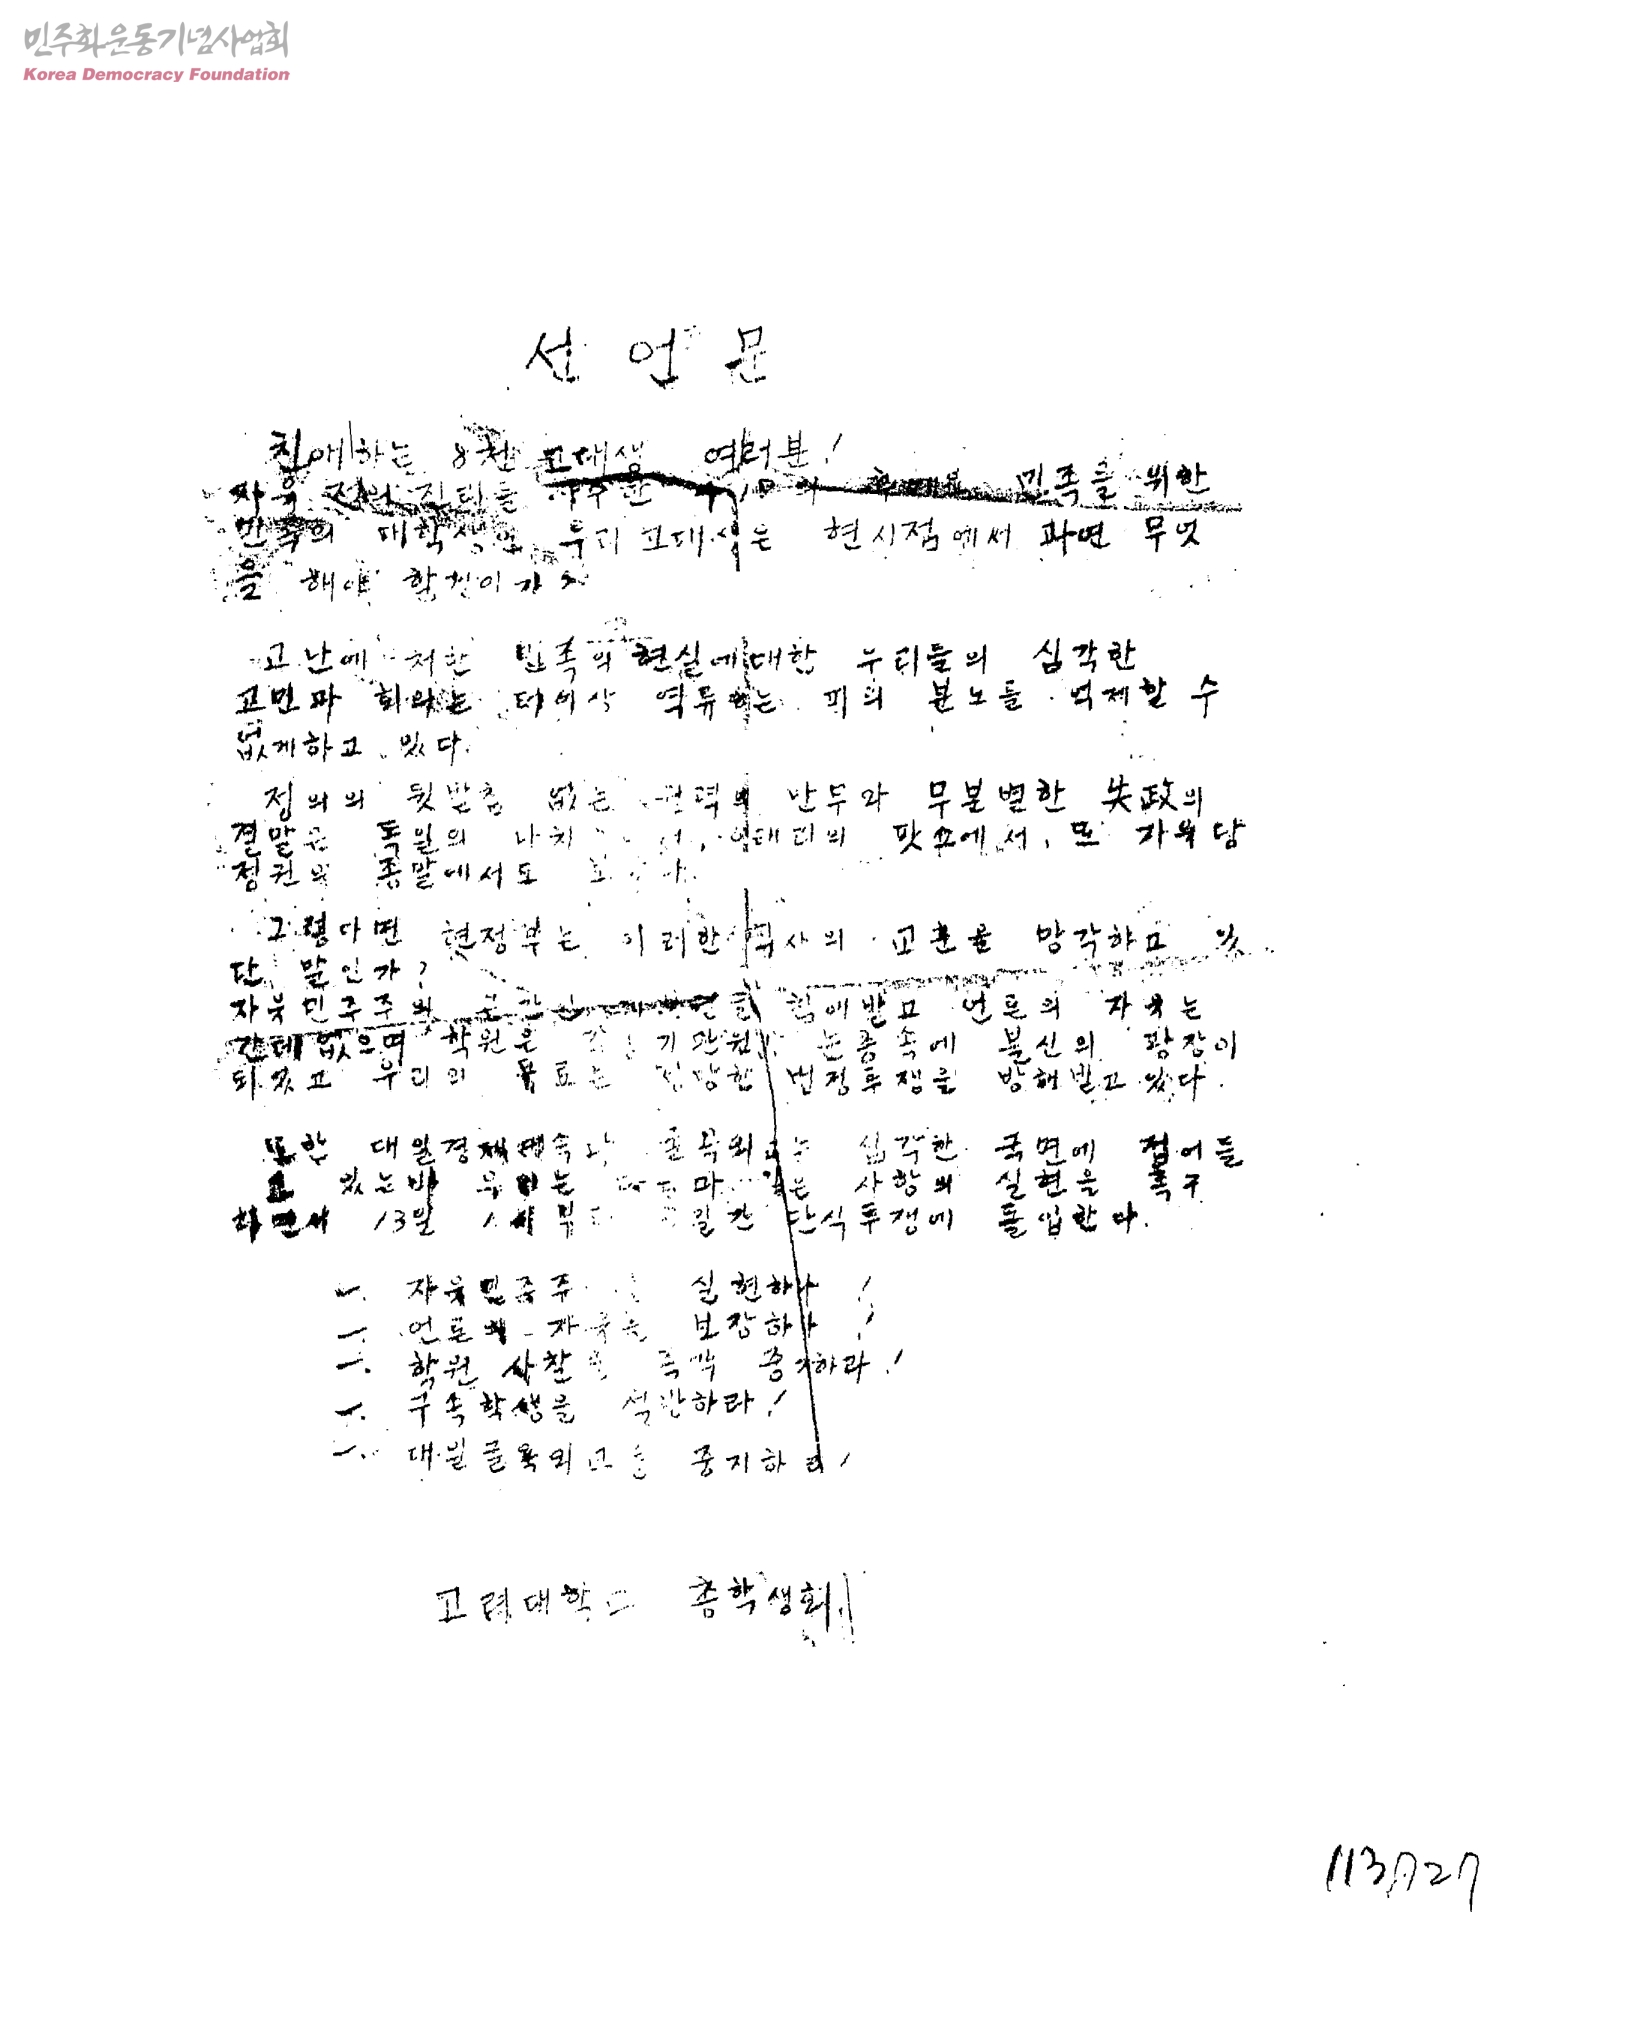 민주화운동기념사업회
Korea Democracy Foundation
선 언 문
친애하는 8천 고대생 여러분!
민족을 위한
민족의 대학생인 우리 고대생은 현시점에서 과연 무엇
을 해야 할것인가?
고난에 처한 민족의 현실에대한 우리들의 심각한
고민과 회의는 더이상 역류하는 피의 분노를 억제할 수
없게하고 있다.
정의의 뒷받침 없는 권력의 난무와 무분별한 失政의
결말은 독일의 나치 이태리의 팟쇼에서, 또 자유당
정권의 종말에서도
그렇다면 현정부는 이러한 역사의 교훈을 망각하고 있
단 말인가?
자웃민주주의 힘에받고 언론의 자웃는
간데없으며 학원은 기관원 눈총속에 불신의 광장이
되었고 우리의 목표는 정당한 번정투쟁을 방해받고 있다.
또한 대일경제예속 굴욕외교는 심각한 국면에 접어들
고 있는바 우리는 사항의 실현을 촉구
하면서 13일 단식투쟁에 돌입한다.
一. 자웃민주주 실현하라!
一. 언론의 자웃를 보장하라!
一. 학원 사찰을 즉각 중지하라!
一. 구속학생을 석방하라!
一. 대일굴욕외교를 중지하라!
고려대학교 총학생회
113727